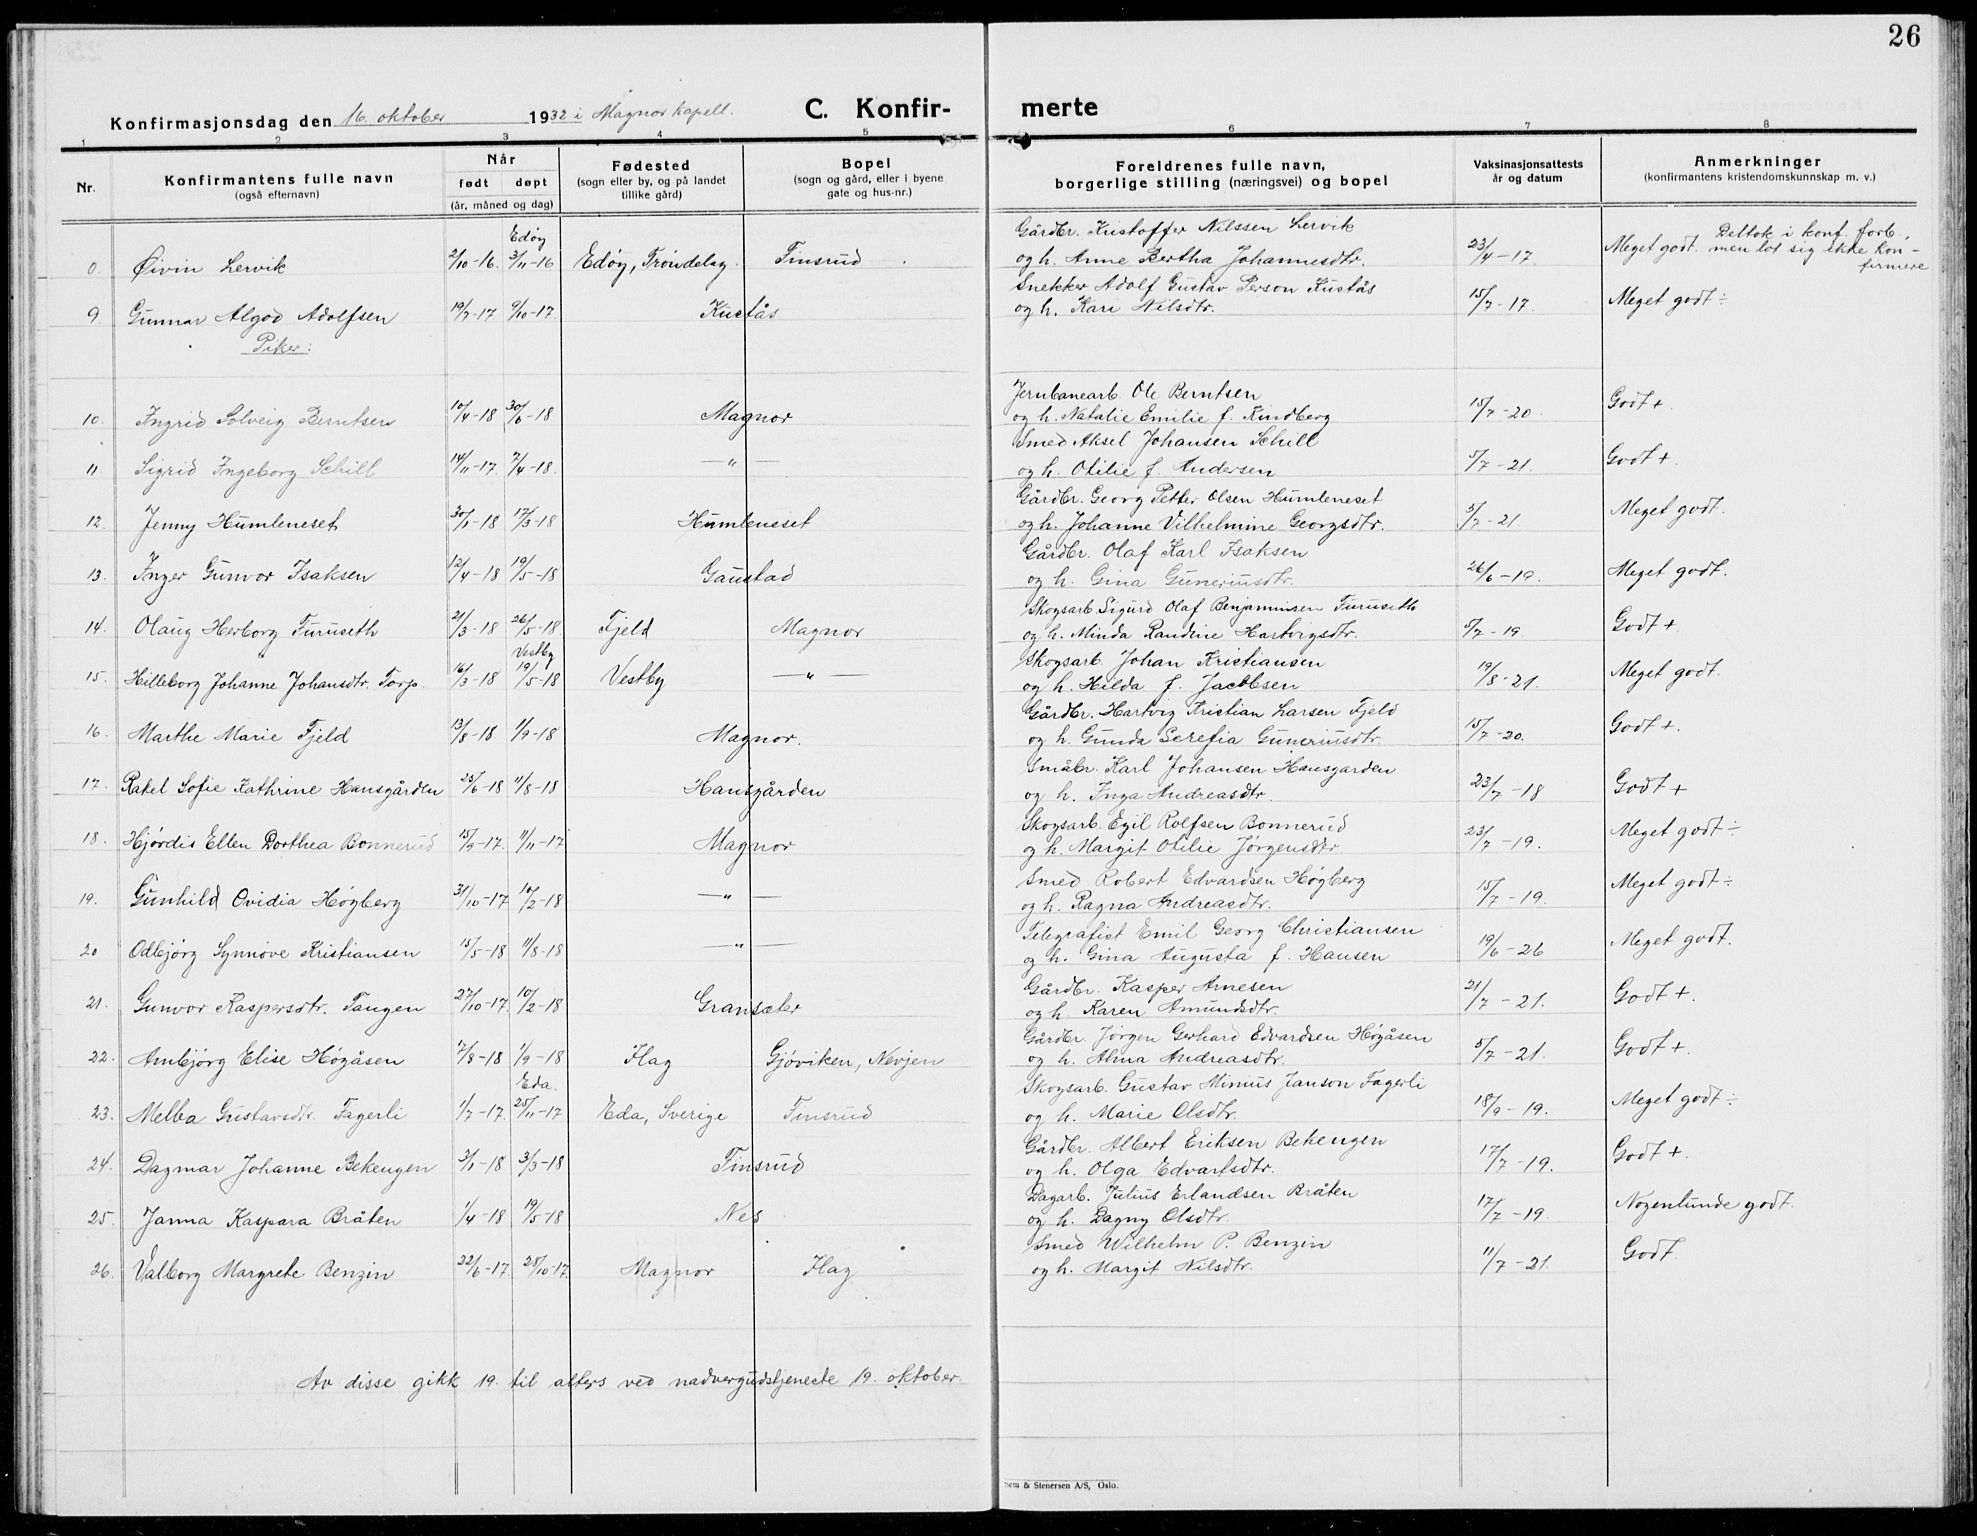 26
Konfirmasjonsdag den 16. oktober 1932 i Magnor kapell. C. Konfir- merte
1 2 3 4 5 6 7 8
Nr. Konfirmantens fulle navn (også efternavn) Når født døpt (år, måned og dag) Fødested (sogn eller by, og på landet tillike gård) Bopel (sogn og gård, eller i byene gate og hus-nr.) Foreldrenes fulle navn, borgerlige stilling (næringsvei) og bopel Vaksinasjonsattests år og datum Anmerkninger (konfirmantens kristendomskunnskap m. v.)
Edöy Gårdbr. Kristoffer Nilssen Lervik Deltok i konf. forb.,
0. Øivin Lervik 2/10-16. 3/11-16 Edöy, Tröndelag. Finsrud og h. Anne Bertha Johannesdtr. 23/4-17. Meget godt. men lot sig ikke kon-
firmere
Snekker Adolf Gustav Person Kustås
9. Gunnar Algod Adolfsen 19/7-17 9/10-17. Kustås og h. Kari Nilsdtr. 15/7-17. Meget godt÷
Piker:
Jernbanearb. Ole Berntsen
10. Ingrid Solveig Berntsen 10/4-18 30/6-18 Magnor og h. Natalie Emilie f. Rundberg 15/7-20. Godt+
Smed Aksel Johansen Schill
11. Sigrid Ingeborg Schill 14/11-17. 7/4-18. —"— og h. Otilie f. Andersen 5/7-21. Godt+.
Gårdbr. Georg Petter Olsen Humleneset
12. Jenny Humleneset 30/1-18 17/3-18 Humleneset og h. Johanne Vilhelmine Georgsdtr. 5/7-21. Meget godt.
Gårdbr. Olaf Karl Isaksen
13. Inger Gunvor Isaksen 12/4-18 19/5-18 Gaustad og h. Gina Guneriusdtr. 26/6-19. Meget godt.
Skogsarb. Sigurd Olaf Benjaminsen Furuseth
14. Olaug Herborg Furuseth 21/3-18 26/5-18. Fjeld Magnor og h. Minda Randine Hartvigsdtr. 5/7-19. Godt+
Vestby Skogsarb. Johan Kristiansen
15. Hilleborg Johanne Johansdtr. Torp. 16/3-18 19/5-18 Vestby —"— og h. Hilda f. Jacobsen 19/8-21. Meget godt.
Gårdbr. Hartvig Kristian Larsen Fjeld
16. Marthe Marie Fjeld 13/8-18 1/9-18 Magnor. og h. Gunda Serefia Guneriusdtr. 15/7-20. Godt+.
Småbr. Karl Johansen Hansgarden
17. Rakel Sofie Kathrine Hansgården 25/6-18 11/8-18 Hansgården og h. Inga Andreasdtr. 23/7-18 Godt+
Skogsarb. Egil Rolfsen Bonnerud
18. Hjørdis Ellen Dorthea Bonnerud 15/9-17. 11/11-17 Magnor og h. Margit Otilie Jørgensdtr. 23/7-19. Meget godt÷
Smed Robert Edvardsen Høgberg
19. Gunhild Ovidia Høgberg 31/10-17 10/2-18 —"— og h. Ragna Andreasdtr. 15/7-19. Meget godt÷
Telegrafist Emil Georg Christiansen
20 Odbjørg Synnöve Kristiansen 15/5-18 11/8-18 —"— og h. Gina Augusta f. Hansen 19/6-26 Meget godt.
Gårdbr. Kasper Arnesen
21. Gunvor Kaspersdtr. Tangen 27/10-17. 10/2-18 Gransæter og h. Karen Amundsdtr. 21/7-21. Godt+.
Gårdbr. Jørgen Gerhard Edvardsen Høgåsen
22. Arnbjörg Elise Högåsen 7/8-18 1/9-18 Flag Gjöviken, Nevjen og h. Alma Andreasdtr. 5/7-21. Godt+.
Eda. Skogsarb. Gustav Minius Janson Fagerli
23. Melba Gustavsdtr. Fagerli 1/7-17. 25/11-17 Eda, Sverige Finsrud og h. Marie Olsdtr. 18/9-19. Meget godt÷
Gårdbr. Albert Eriksen Bekengen
24. Dagmar Johanne Bekengen 3/1-18 3/3-18 Finsrud og h. Olga Edvartsdtr. 17/7-19. Godt+.
Dagarb. Julius Erlandsen Bråten
25. Janna Kaspara Bråten 1/4-18 19/5-18 Nes og h. Dagny Olsdtr. 17/7-19. Nogenlunde godt.
Smed Wilhelm P. Benzin
26. Valborg Margrete Benzin 22/6-17. 25/10-17. Magnor Flag og h. Margit Nilsdtr. 11/7-21. Godt.
Av disse gikk 19 til alters ved nadvergudstjeneste 19. oktober.
& Stenersen A/S, Oslo.